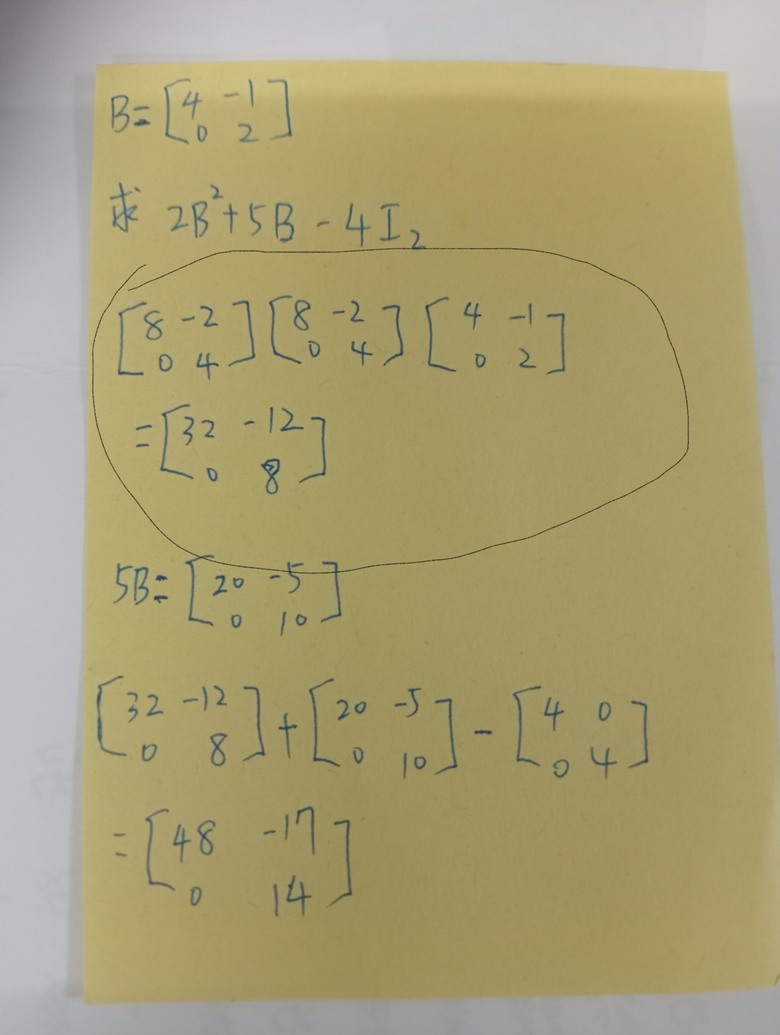 B=[4 -1
0 2]
求 2B²+5B-4I₂
[8 -2 [8 -2 [4 -1
0 4] 0 4] 0 2]
=[32 -12
0 8]
5B=[20 -5
0 10]
[32 -12 + [20 -5 - [4 0
0 8] 0 10] 0 4]
=[48 -17
0 14]